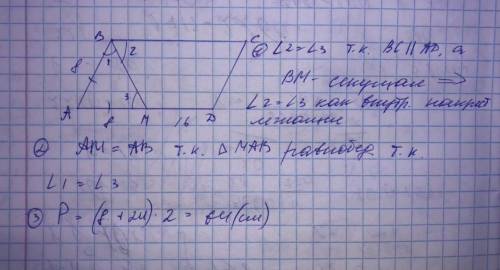 B
C
8
1
2
3
A
8
M
16
D
① ∠2=∠3 т.к. BC∥AD, а
BM - секущая ⇒
∠2=∠3 как внутр. накрест
лежащие
② AM = AB т.к. △MAB равнобед. т.к
∠1 = ∠3
③ P = (8 + 24) · 2 = 64(см)